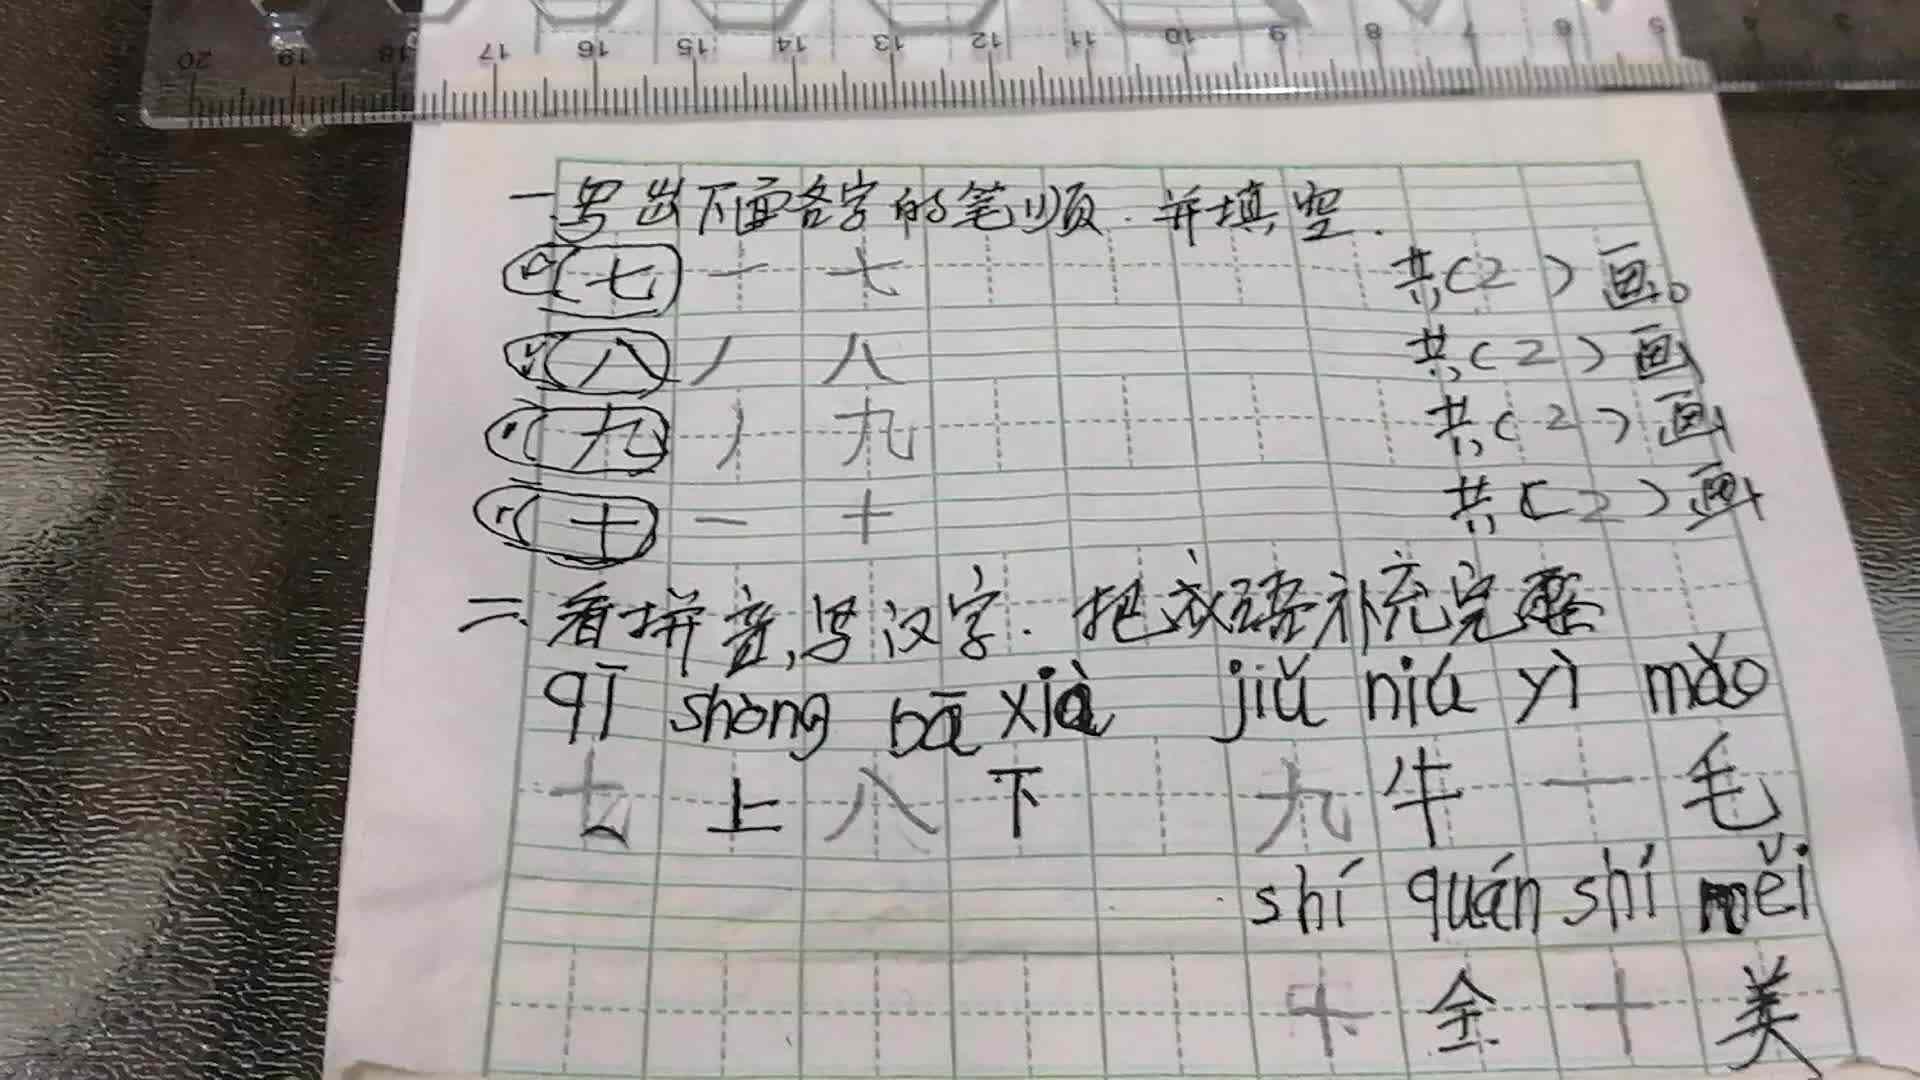 20 19 18 17 16 15 14 13 12 11 10 9 8 7 6 5 4 3
一.写出下面各字的笔顺.并填空.
七 一 七 共(2)画。
八 丿 八 共(2)画
九 丿 九 共(2)画
十 一 十 共(2)画
二.看拼音,写汉字.把成语补充完整
qī shàng bā xià jiǔ niú yì máo
七 上 八 下 九 牛 一 毛
shí quán shí měi
十 全 十 美